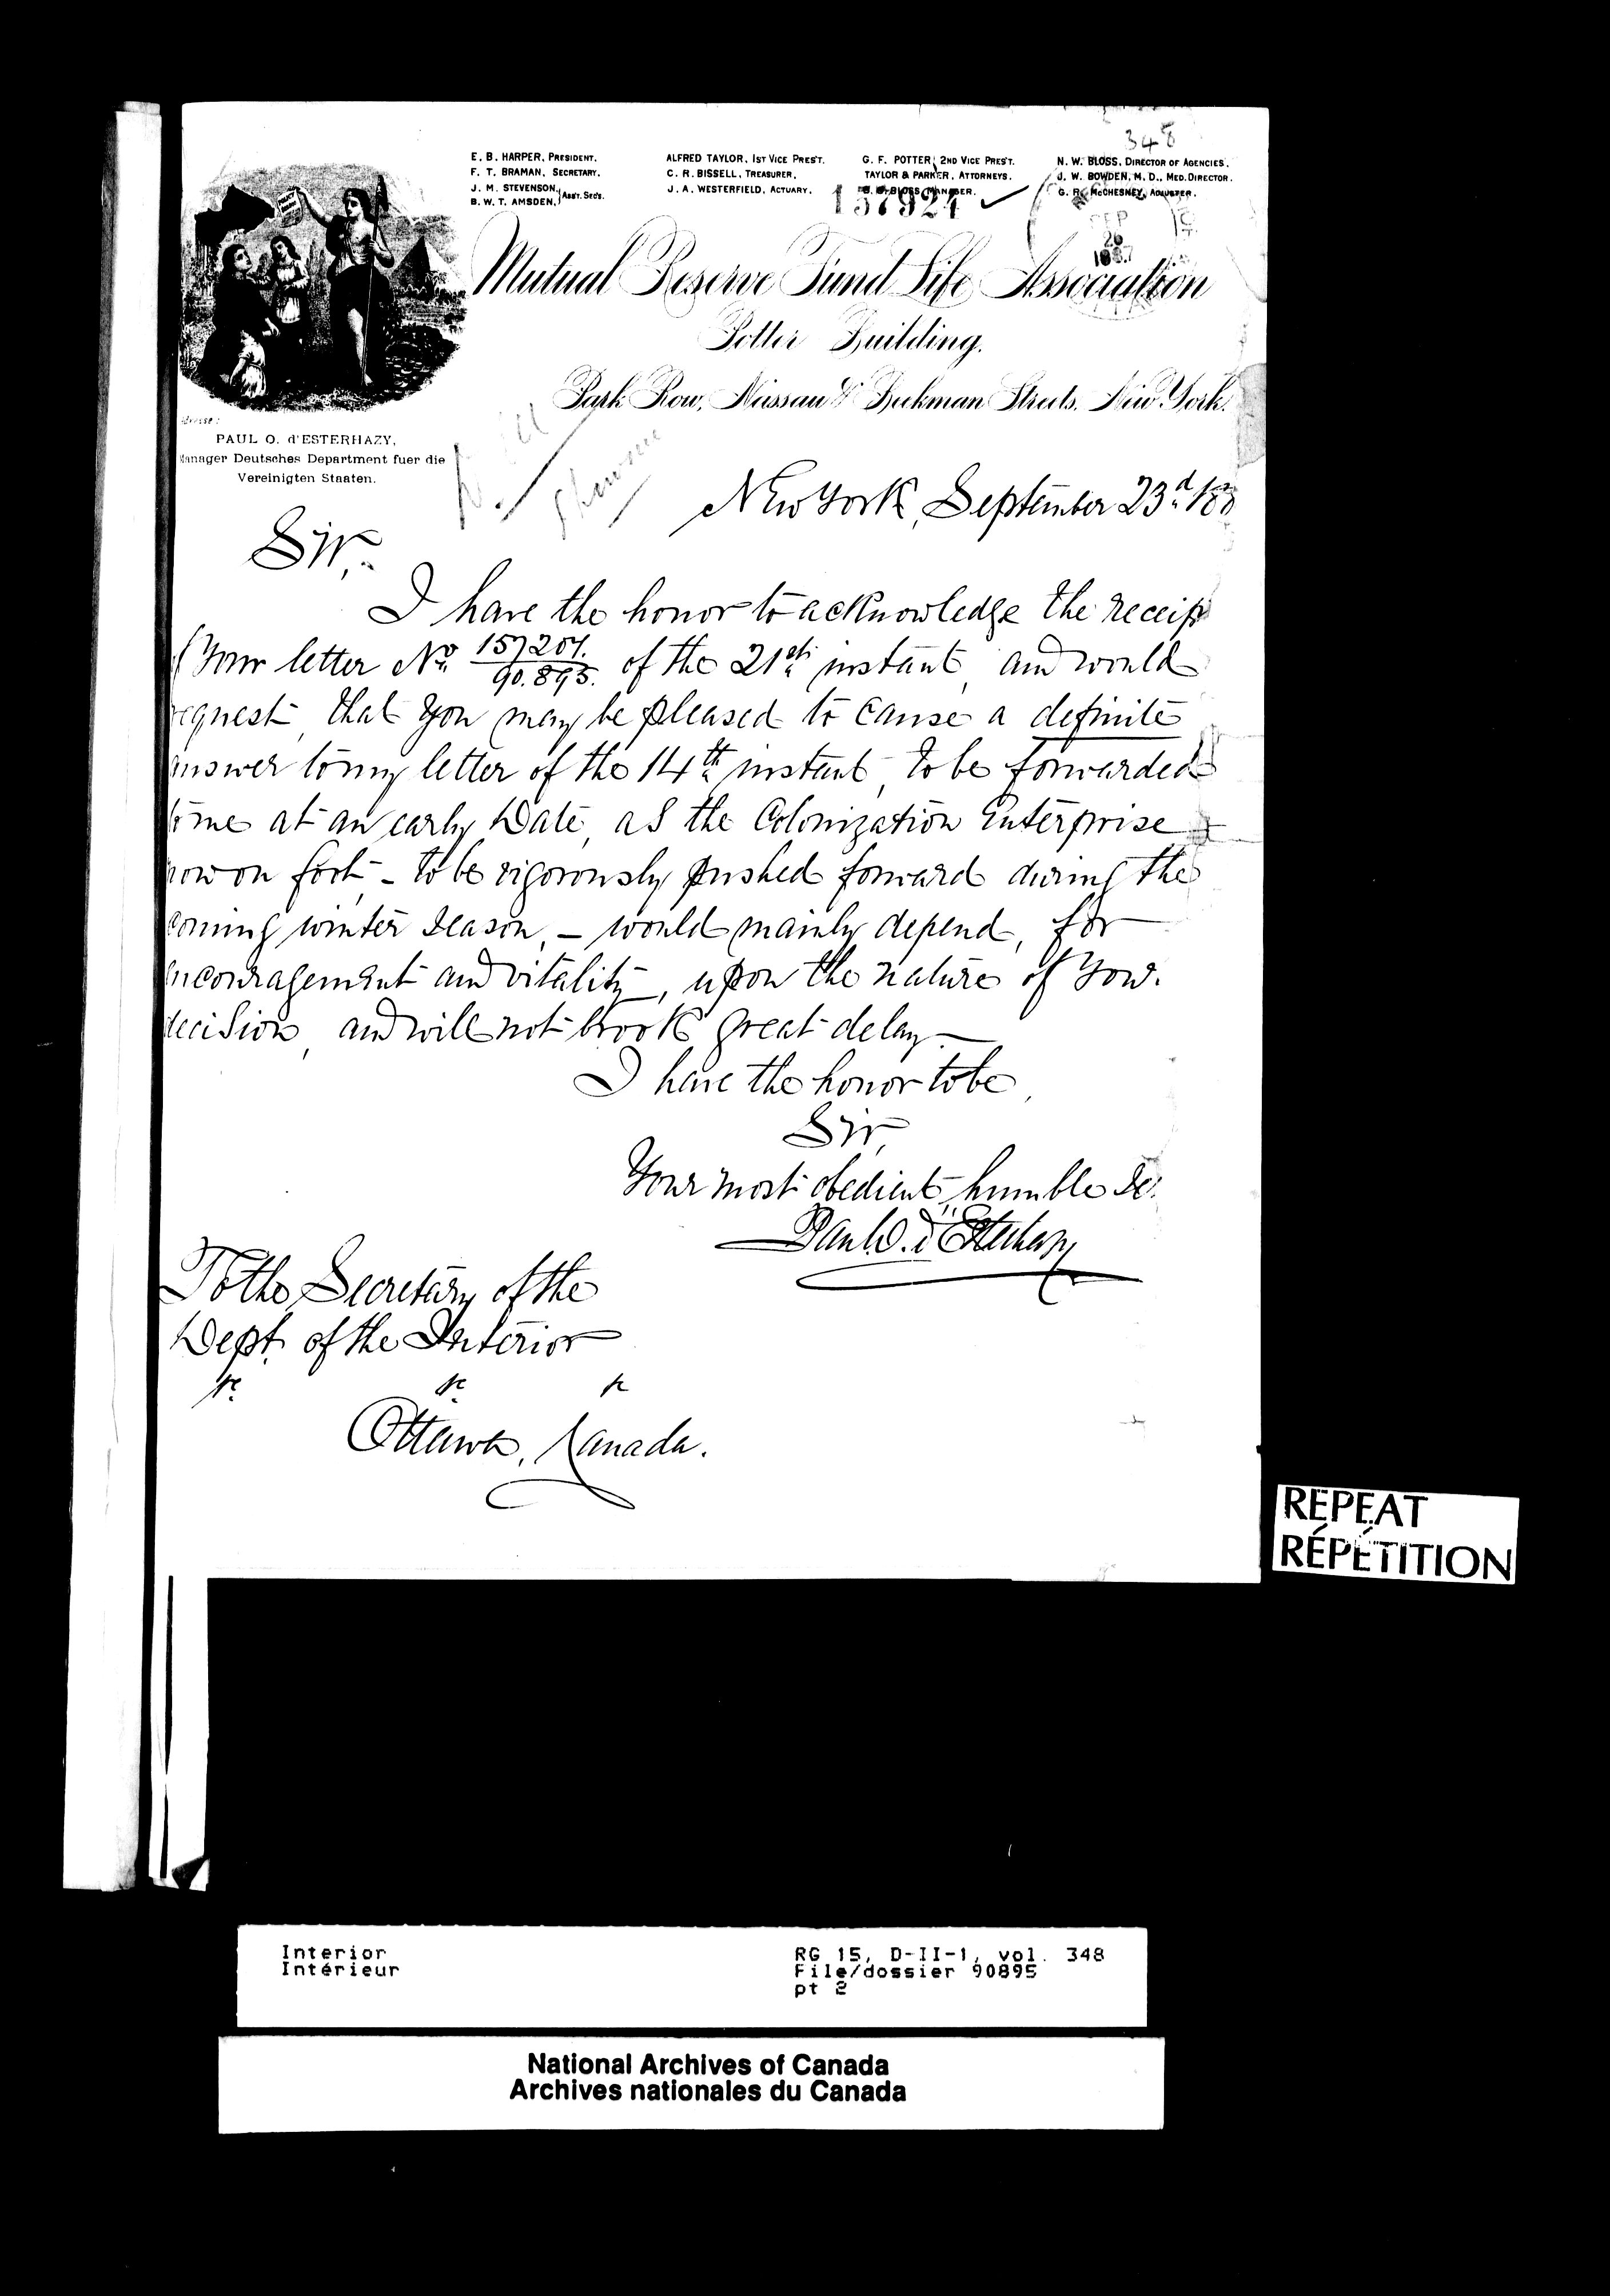 348
E. B. HARPER, PRESIDENT.
F. T. BRAMAN, SECRETARY.
J. M. STEVENSON,
B. W. T. AMSDEN, } ASS'T. SEC'S.
ALFRED TAYLOR, 1ST VICE PRES'T.
C. R. BISSELL, TREASURER.
J. A. WESTERFIELD, ACTUARY.
G. F. POTTER, 2ND VICE PRES'T.
TAYLOR & PARKER, ATTORNEYS.
BLOSS, MANAGER.
N. W. BLOSS, DIRECTOR OF AGENCIES.
J. W. BOWDEN, M. D., MED. DIRECTOR.
G. R. McCHESNEY, ADJUSTER.
157924
SEP
26
1887
Mutual Reserve Fund Life Association
Potter Building.
Park Row, Nassau & Beekman Streets, New York.
PAUL O. d'ESTERHAZY,
Manager Deutsches Department fuer die
Vereinigten Staaten.
New York, September 23d 188
Sir,
I have the honor to acknowledge the receip
Your letter No. 157201./90.895. of the 21st instant, and would
request, that You may be pleased to cause a definite
answer to my letter of the 14th instant, to be forwarded
to me at an early Date, as the Colonization Enterprise
now on foot - to be vigorously pushed forward during the
coming winter season, - would mainly depend, for
encouragement and vitality, upon the nature of Your
decision, and will not brook great delay. -
I have the honor to be,
Sir,
Your most obedient, humble Se.
Paul O. d'Esterhazy
To the Secretary of the
Dept. of the Interior
&c. &c. &c
Ottawa, Canada.
REPEAT
RÉPÉTITION
Interior
Intérieur
RG 15, D-II-1, vol. 348
File/dossier 90895
pt 2
National Archives of Canada
Archives nationales du Canada